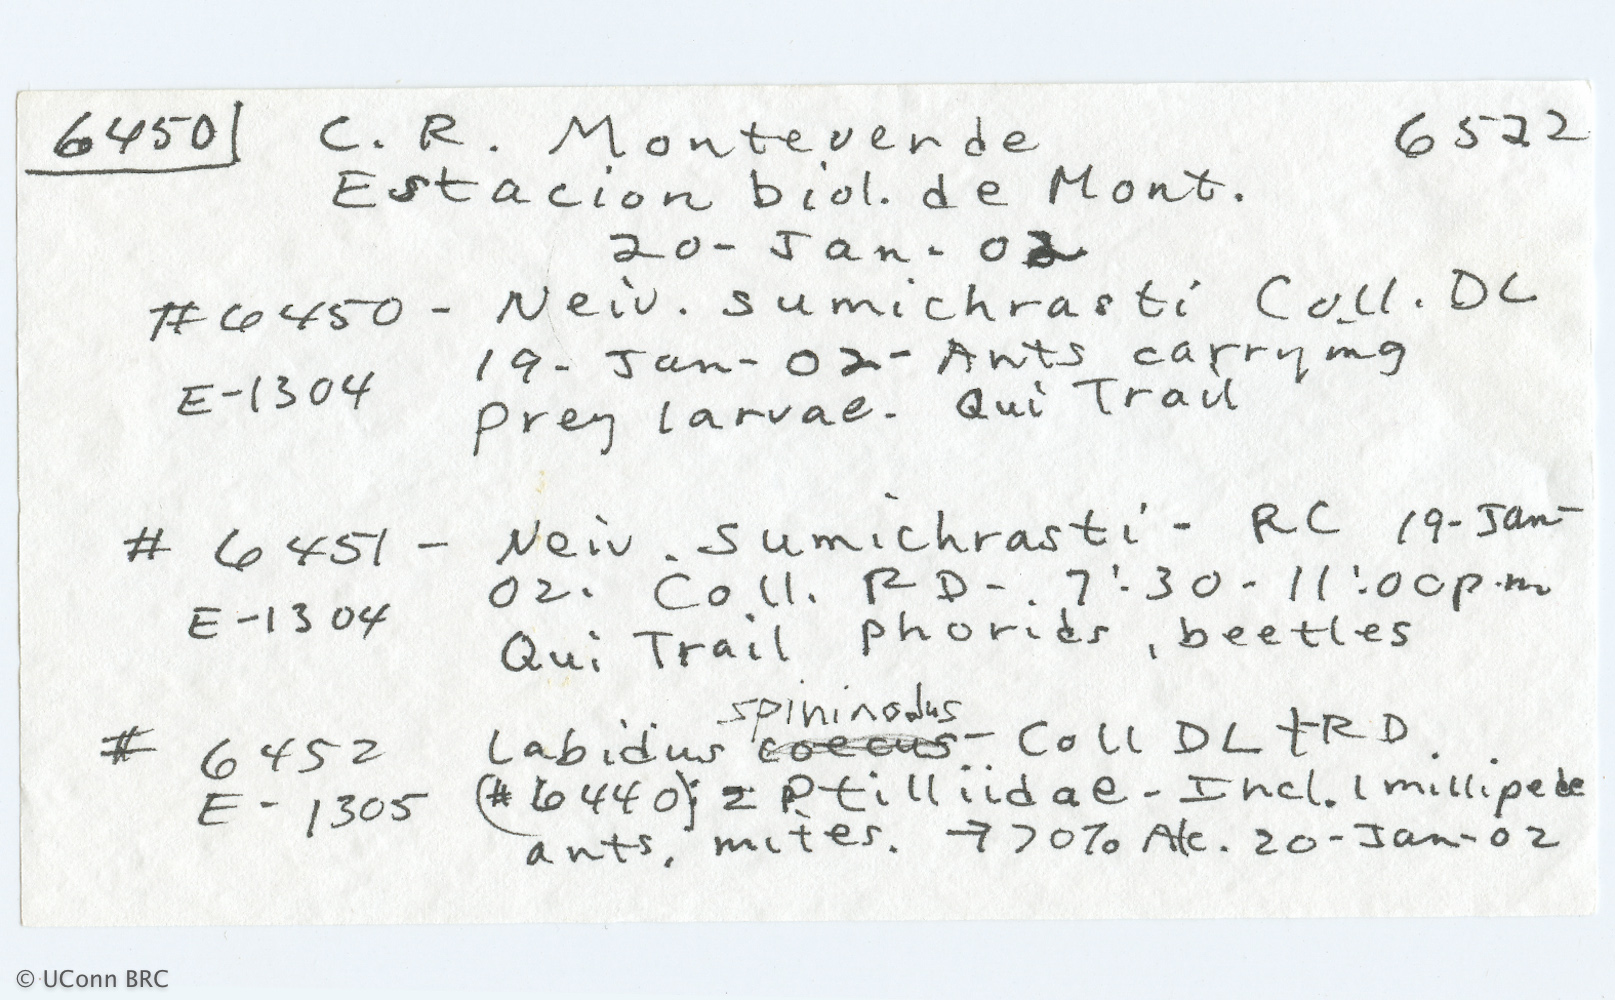 6450 C. R. Monteverde 6522
Estacion biol. de Mont.
20-Jan-02
#6450 - Neiv. sumichrasti Coll. DL
E-1304 19-Jan-02- Ants carrying
prey larvae. Qui Trail
# 6451 - Neiv. sumichrasti - RC 19-Jan-
E-1304 02. Coll. RD-. 7:30-11:00 p.m
Qui Trail phorids, beetles
spininodus
# 6452 Labidus coecus - Coll DL + RD.
E-1305 (#6440); 2 Ptilliidae - Incl. 1 millipede
ants, mites. → 70% Alc. 20-Jan-02
© UConn BRC